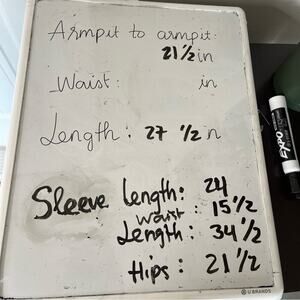 Armpit to armpit:
21 1/2 in
Waist: in
Length: 27 1/2 n
Sleeve Length: 24
waist: 15 1/2
Length: 34 1/2
Hips: 21 1/2
U BRANDS
EXPO